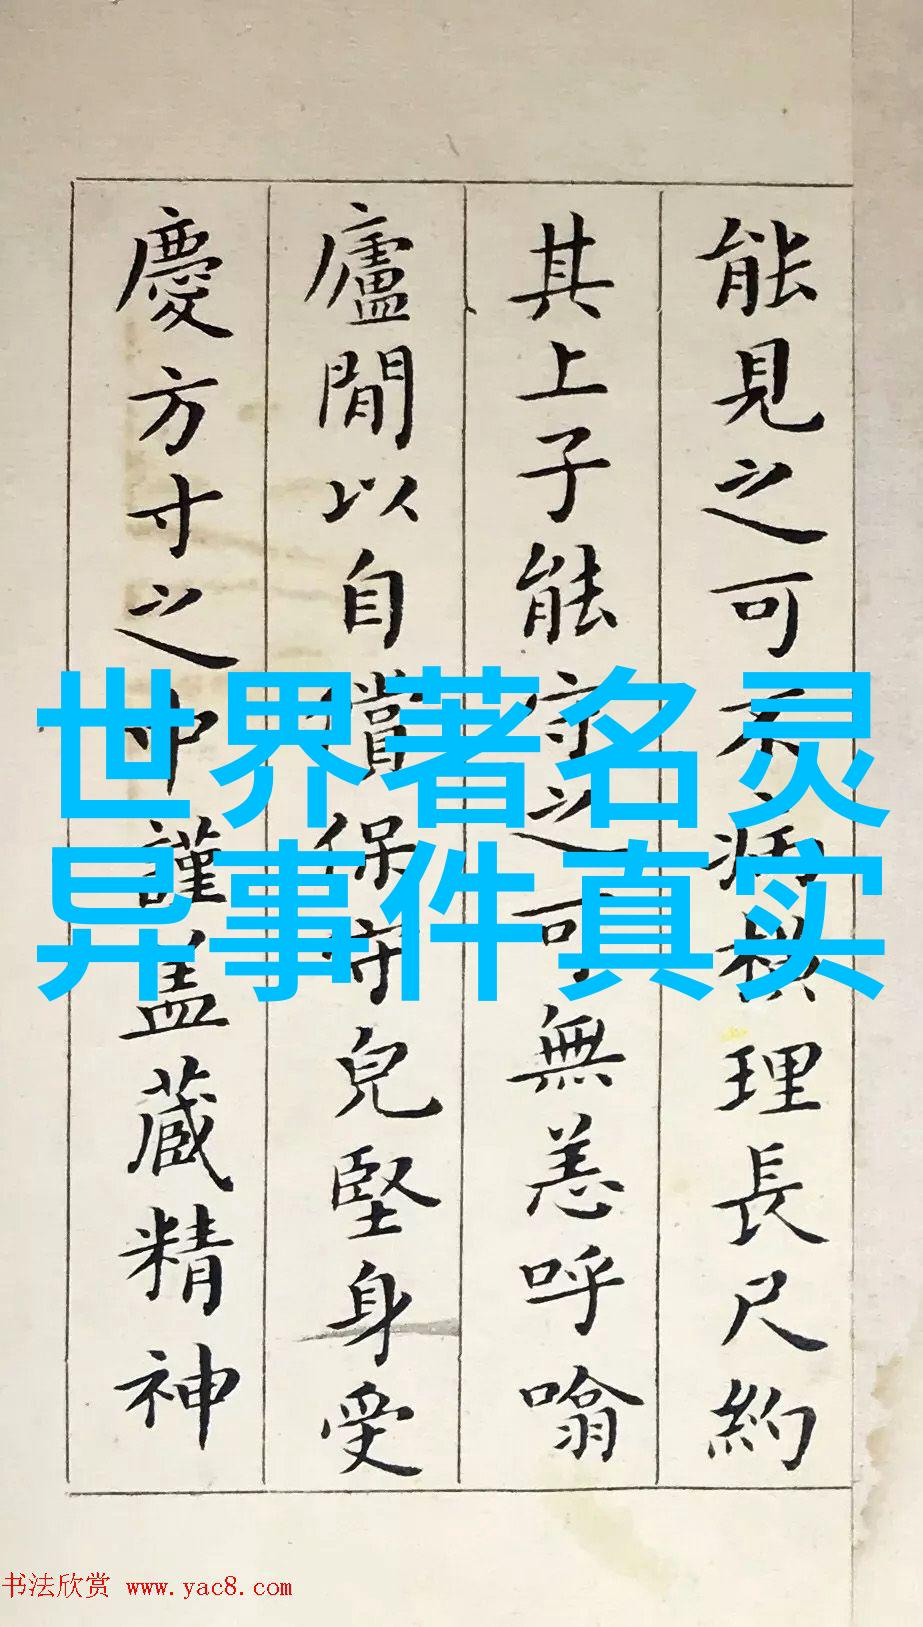 能見之可不病橫理長尺約
其上子能守之可無恙呼噏
廬閒以自償保守兒堅身受
慶方寸之中謹盖蔵精神
世界著名灵
异事件真实
书法欣赏 www.yac8.com